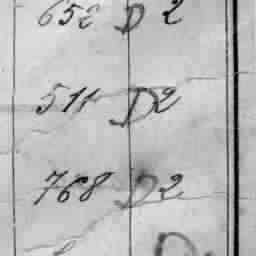 652 D 2
511 D2
768 D2
D